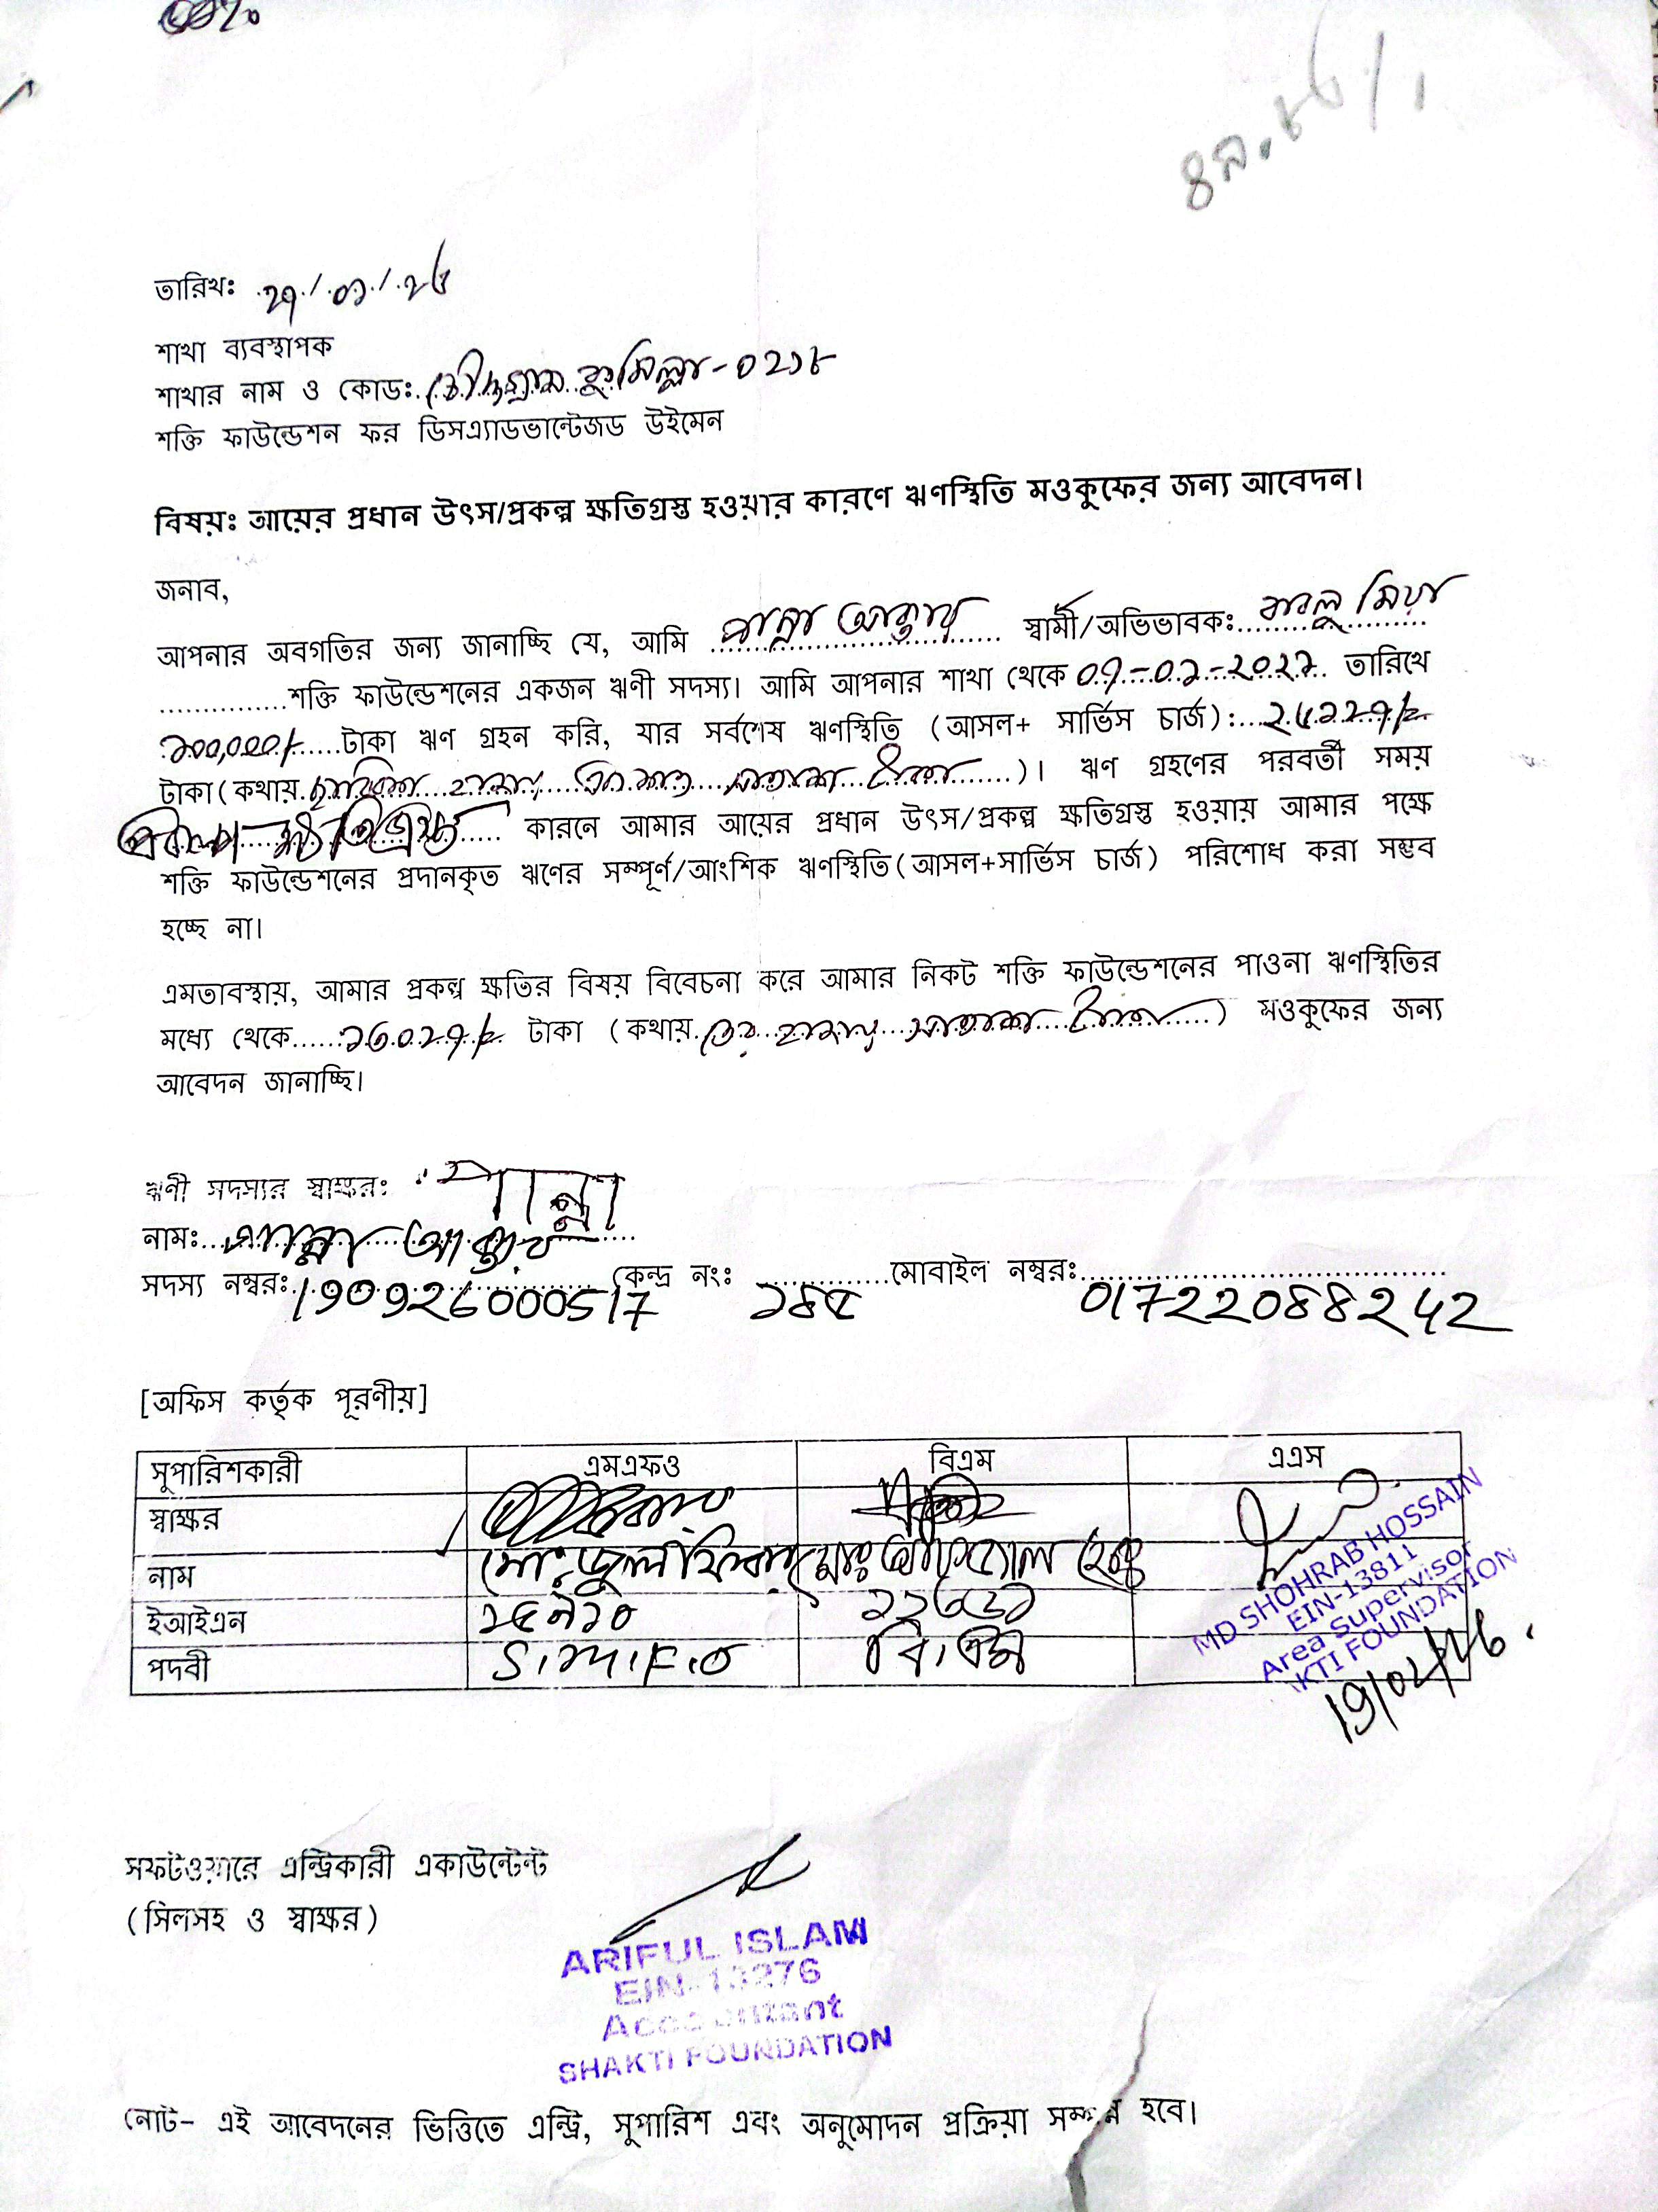 তারিখঃ ২৭/০১/২৬
শাখা ব্যবস্থাপক
শাখার নাম ও কোডঃ চৌদ্দগ্রাম কুমিল্লা-০২১৮
শক্তি ফাউন্ডেশন ফর ডিসএ্যাডভান্টেজড উইমেন
বিষয়ঃ আয়ের প্রধান উৎস/প্রকল্প ক্ষতিগ্রস্ত হওয়ার কারণে ঋণস্থিতি মওকুফের জন্য আবেদন।
জনাব,
আপনার অবগতির জন্য জানাচ্ছি যে, আমি পান্না আক্তার স্বামী/অভিভাবকঃ কালু মিয়া
শক্তি ফাউন্ডেশনের একজন ঋণী সদস্য। আমি আপনার শাখা থেকে তারিখে
টাকা ঋণ গ্রহন করি, যার সর্বশেষ ঋণস্থিতি (আসল+ সার্ভিস চার্জ):
টাকা (কথায় হাজার একশত সাতাশ টাকা)। ঋণ গ্রহণের পরবর্তী সময়
প্রকল্প ক্ষতিগ্রস্ত কারনে আমার আয়ের প্রধান উৎস/প্রকল্প ক্ষতিগ্রস্ত হওয়ায় আমার পক্ষে
শক্তি ফাউন্ডেশনের প্রদানকৃত ঋণের সম্পূর্ণ/আংশিক ঋণস্থিতি(আসল+সার্ভিস চার্জ) পরিশোধ করা সম্ভব
হচ্ছে না।
এমতাবস্থায়, আমার প্রকল্প ক্ষতির বিষয় বিবেচনা করে আমার নিকট শক্তি ফাউন্ডেশনের পাওনা ঋণস্থিতির
মধ্যে থেকে ১৩০২৭/= টাকা (কথায় তের হাজার সাতাশ টাকা) মওকুফের জন্য
আবেদন জানাচ্ছি।
ঋণী সদস্যর স্বাক্ষরঃ পান্না
নামঃ পান্না আক্তার
সদস্য নম্বরঃ 190926000517 কেন্দ্র নংঃ ১৪৫ মোবাইল নম্বরঃ
[অফিস কর্তৃক পূরণীয়]
সুপারিশকারী এমএফও বিএম এএস
স্বাক্ষর
নাম মোঃ জুলফিকার মোঃ
ইআইএন ১৫৭১০
পদবী S.M.F.O বি.এম
MD SHOHRAB HOSSAIN
EIN-13811
Area Supervisor
KTI FOUNDATION
সফটওয়ারে এন্ট্রিকারী একাউন্টেন্ট
(সিলসহ ও স্বাক্ষর)
ARIFUL ISLAM
EIN-13276
Accountant
SHAKTI FOUNDATION
নোট- এই আবেদনের ভিত্তিতে এন্ট্রি, সুপারিশ এবং অনুমোদন প্রক্রিয়া সম্পন্ন হবে।